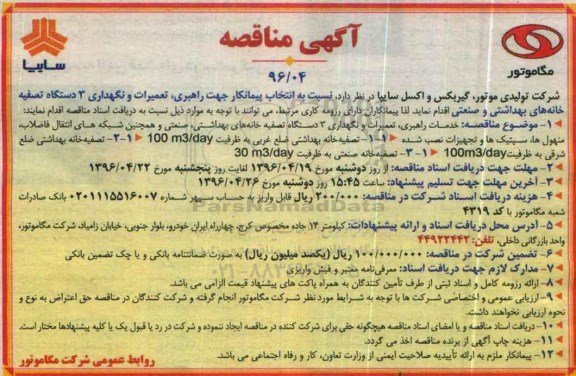 آگهی مناقصه
۹۶/۰۴
مگاموتور
سایپا
شرکت تولیدی موتور، گیربکس و اکسل سایپا در نظر دارد، نسبت به انتخاب پیمانکار جهت راهبری، تعمیرات و نگهداری ۳ دستگاه تصفیه
خانه‌های بهداشتی و صنعتی اقدام نماید. لذا پیمانکاران دارای رزومه کاری مرتبط، می توانند با توجه به موارد ذیل نسبت به دریافت اسناد مناقصه اقدام نمایند:
۱- موضوع مناقصه: خدمات راهبری، تعمیرات و نگهداری ۳ دستگاه تصفیه خانه‌های بهداشتی، صنعتی و همچنین شبکه های انتقال فاضلاب،
منهول ها، سپتیک ها و تجهیزات نصب شده ۱-۱- تصفیه‌خانه بهداشتی ضلع غربی به ظرفیت 100 m3/day ۲-۱- تصفیه‌خانه بهداشتی ضلع
شرقی به ظرفیت 100m3/day ۳-۱- تصفیه‌خانه صنعتی به ظرفیت 30 m3/day
۲- مهلت جهت دریافت اسناد مناقصه: از روز دوشنبه مورخ ۱۳۹۶/۰۴/۱۹ لغایت روز پنجشنبه مورخ ۱۳۹۶/۰۴/۲۲
۳- آخرین مهلت جهت تسلیم پیشنهاد: ساعت ۱۵:۴۵ روز دوشنبه مورخ ۱۳۹۶/۰۴/۲۶
۴- هزینه دریافت اسناد شرکت در مناقصه: ۲۰۰/۰۰۰ ریال قابل واریز به حساب سپهر شماره ۰۲۰۱۱۱۵۵۱۶۰۰۷ بانک صادرات
شعبه مگاموتور با کد ۴۳۱۹
۵- آدرس محل دریافت اسناد و ارائه پیشنهادات: کیلومتر ۱۴ جاده مخصوص کرج، چهارراه ایران خودرو، بلوار جنوبی، خیابان زامیاد، شرکت مگاموتور،
واحد بازرگانی داخلی، تلفن: ۴۴۹۲۲۴۴۲
۶- تضمین شرکت در مناقصه: ۱۰۰/۰۰۰/۰۰۰ ریال (یکصد میلیون ریال) به صورت ضمانتنامه بانکی و یا چک تضمین بانکی
۷- مدارک لازم جهت دریافت اسناد: معرفی‌نامه معتبر و فیش واریزی
۸- ارائه رزومه کامل و اسناد ثبتی از طرف تأمین کنندگان به همراه پاکت های پیشنهاد قیمت الزامی می باشد.
۹- ارزیابی عمومی و اختصاصی شرکت ها با توجه به شرایط مورد نظر شرکت مگاموتور انجام گرفته و شرکت کنندگان در مناقصه حق اعتراض به نوع و
نحوه ارزیابی نخواهند داشت.
۱۰- دریافت اسناد مناقصه و یا امضای اسناد مناقصه هیچگونه حقی برای شرکت کننده در مناقصه ایجاد ننموده و شرکت در رد یا قبول یک یا کلیه پیشنهادها مختار است.
۱۱- هزینه چاپ آگهی از برنده مناقصه اخذ می گردد.
۱۲- پیمانکار ملزم به ارائه تأییدیه صلاحیت ایمنی از وزارت تعاون، کار و رفاه اجتماعی می باشد.
روابط عمومی شرکت مگاموتور
ParsNamadData